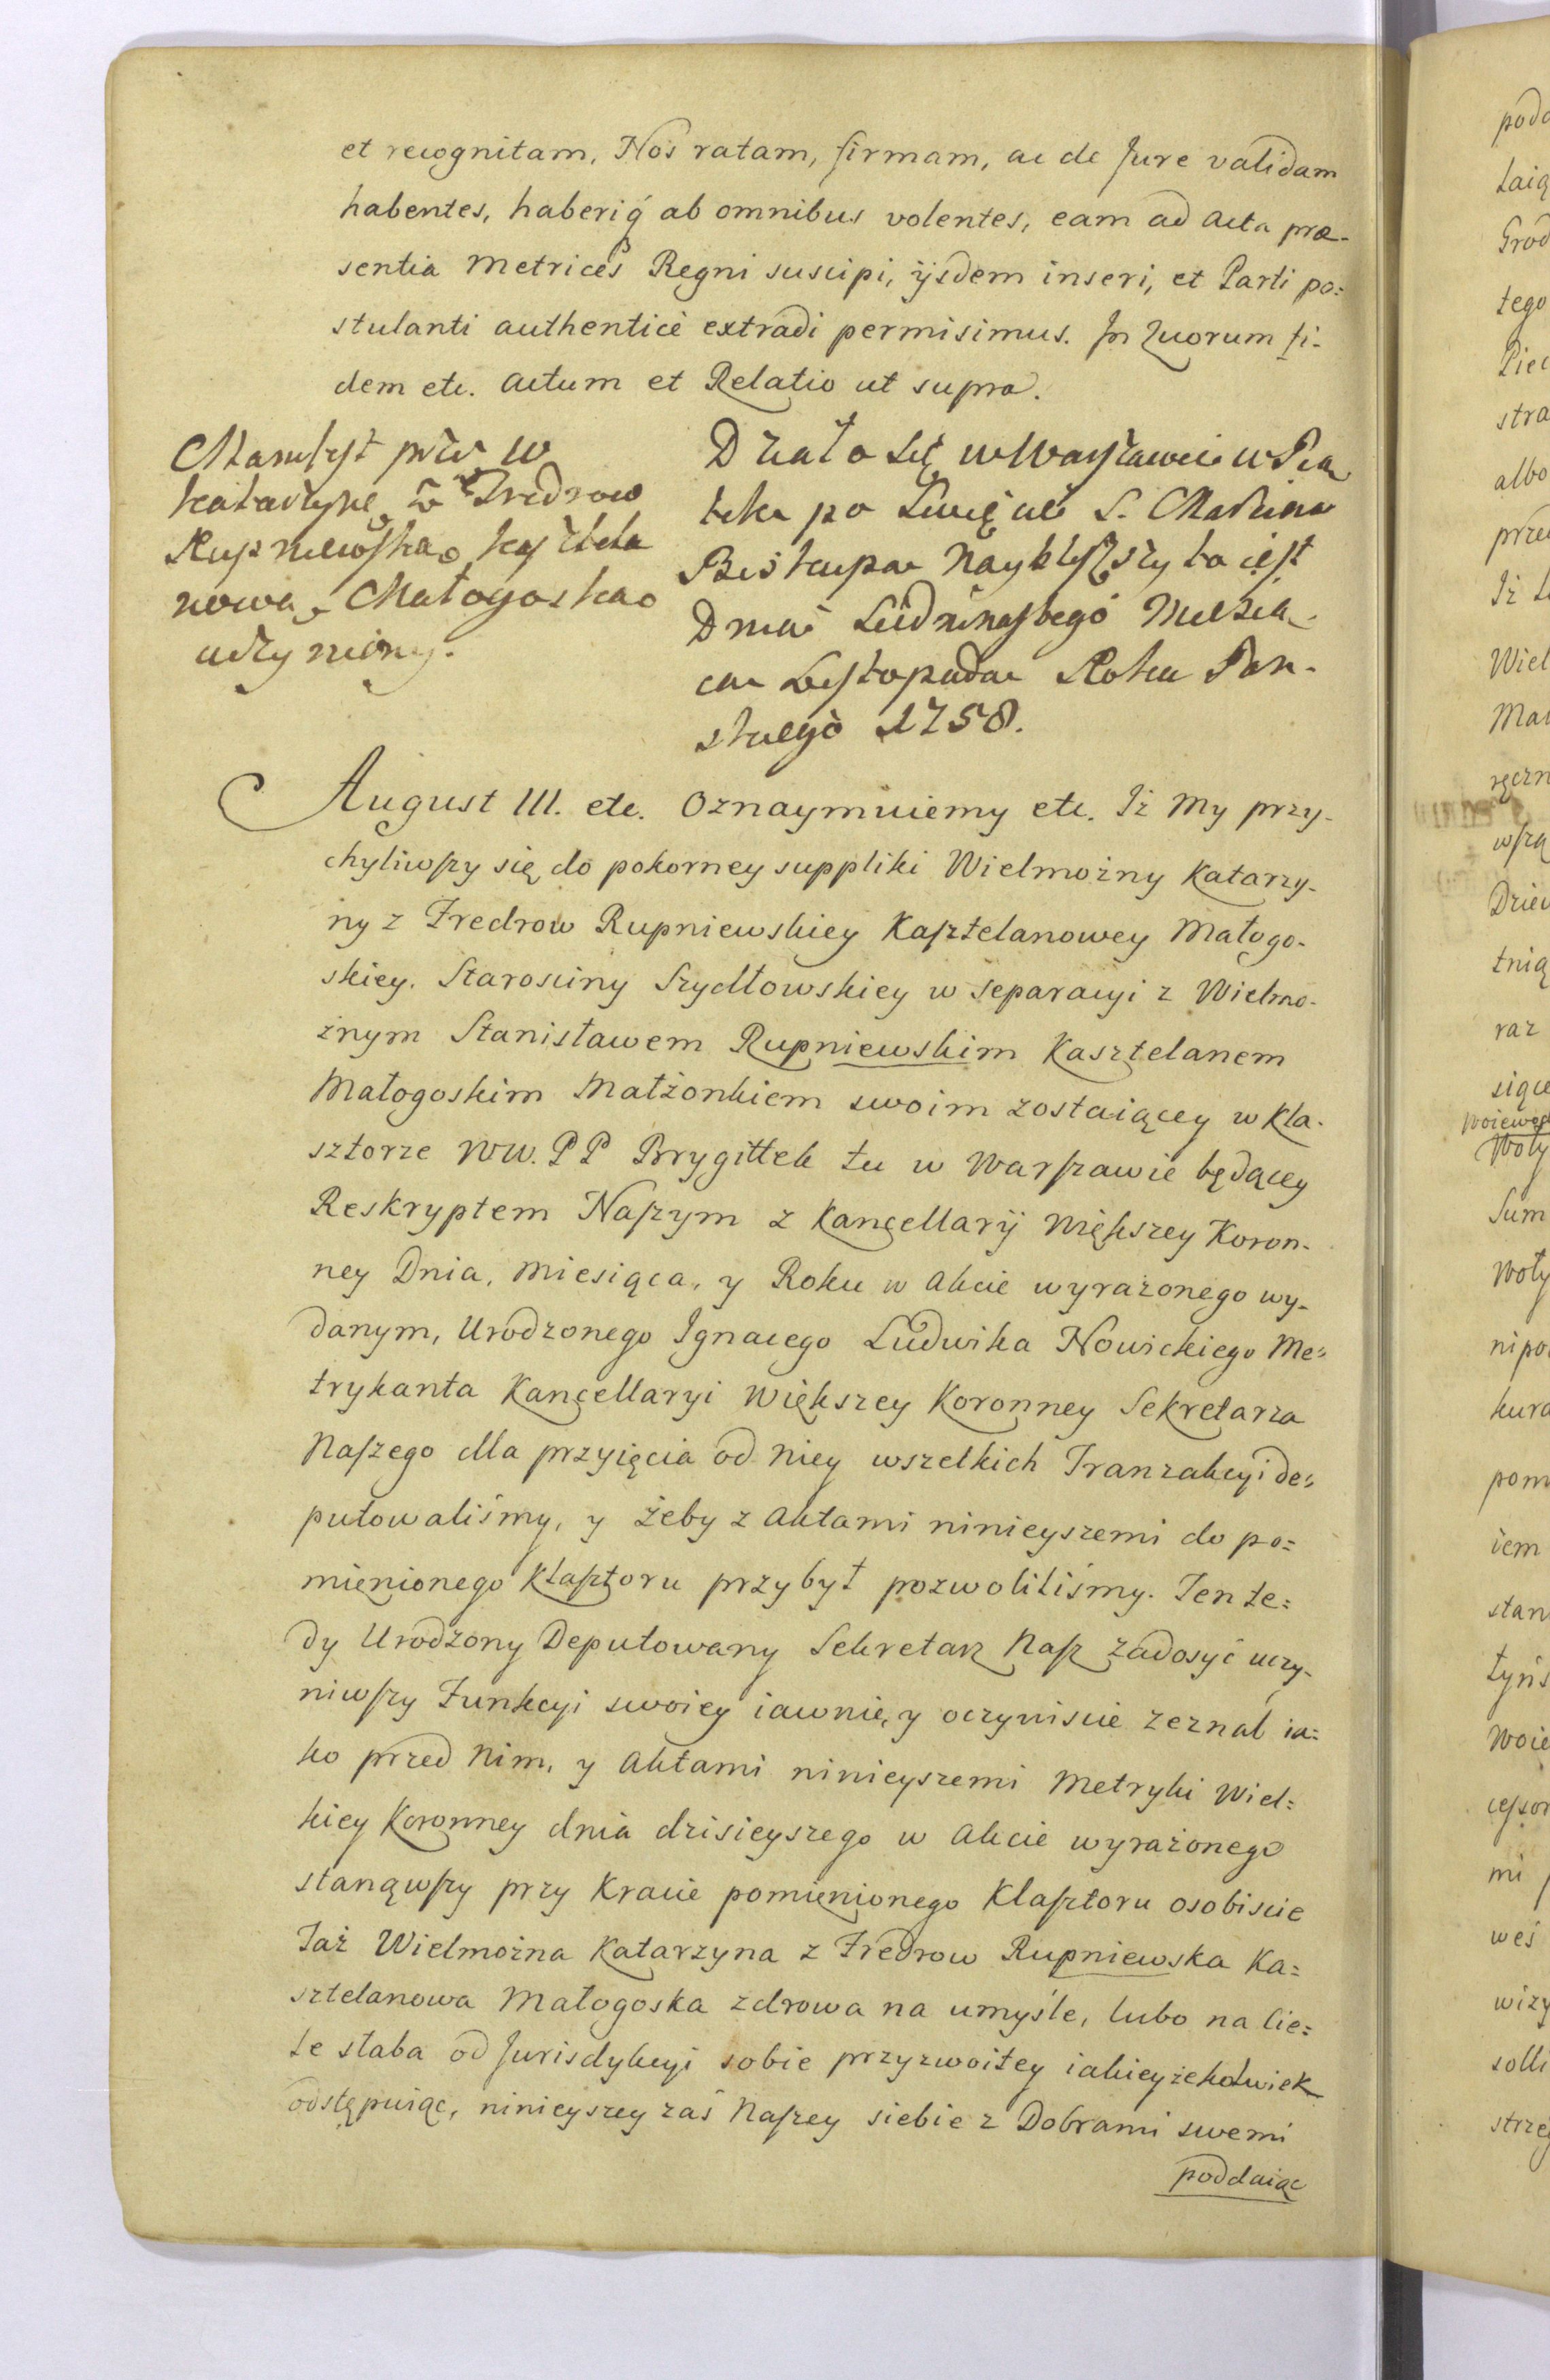 et recognitam, Nos ratam, firmam, ac de Jure validam
habentes, haberiq́ ab omnibus volentes, eam ad Acta præ-
sentia Metrices Regni suscipi, ijsdem inseri, et Parti po=
stulanti authenticè extradi permisimus. In Quorum fi-
dem etc. Actum et Relatio ut supra.
Manifest przez W
Katarzynę z Fredrow
Rupniewską Kasztela
nową Małogoską
uczyniony.
Działo się w Warszawie w Pią
tek po Święcie S. Marcina
Biskupa naybliższy to iest
Dnia Siedmnastego Miesią-
ca Listopada Roku Pan-
skiego 1758.
August III. etc. Oznaymuiemy etc. Iż My przy-
chyliwszy się do pokorney suppliki Wielmożny Katarzy-
ny z Fredrow Rupniewskiey Kasztelanowey Małogo-
skiey. Starosciny Szydłowskiey w separacyi z Wielmo-
żnym Stanisławem Rupniewskim Kasztelanem
Małogoskim Małżonkiem swoim zostaiącey w Kla-
sztorze WW. PP Brygittek tu w Warszawie będącey
Reskryptem Naszym z Kancellarij Większey Koron-
ney Dnia, Miesiąca, y Roku w Akcie wyrazonego wy-
danym, Urodzonego Ignacego Ludwika Nowickiego Me=
trykanta Kancellaryi Większey Koronney Sekretarza
Naszego dla przyięcia od Niey wszelkich Tranzakcyi de=
putowaliśmy, y żeby z Aktami ninieyszemi do po=
mienionego Klasztoru przybył pozwoliliśmy. Ten te=
dy Urodzony Deputowany Sekretarz Nasz zadosyć uczy-
niwszy Funkcyi swoiey iawnie, y oczywiscie zeznał ia=
ko przed Nim, y Aktami ninieyszemi Metryki Wiel=
kiey Koronney dnia dzisieyszego w Akcie wyrażonego
stanąwszy przy Kracie pomienionego Klasztoru osobiscie
Taż Wielmożna Katarzyna z Fredrow Rupniewska Ka=
sztelanowa Małogoska zdrowa na umyśle, lubo na cie=
le słaba od Jurisdykcyi sobie przyzwoitey iakieyżekolwiek
odstępuiąc, ninieyszey zaś Naszey siebie z Dobrami swemi
poddaiąc